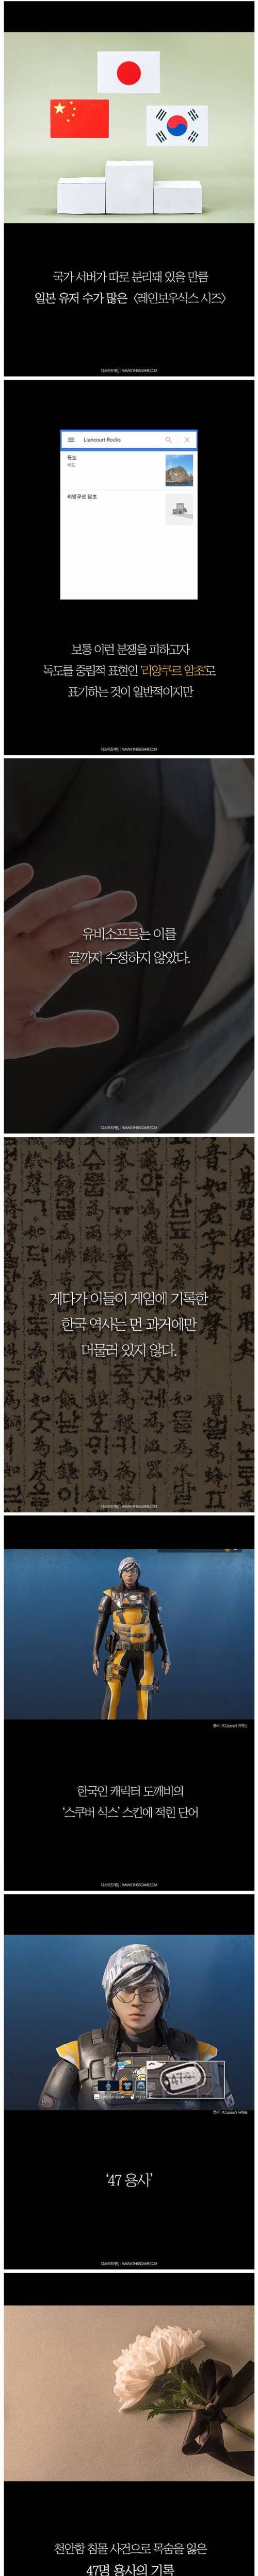 국가 서버가 따로 분리돼 있을 만큼
일본 유저 수가 많은 <레인보우식스 시즈>
디스이즈게임 | WWW.THISISGAME.COM
Liancourt Rocks
독도
리앙쿠르 암초
보통 이런 분쟁을 피하고자
독도를 중립적 표현인 '리앙쿠르 암초'로
표기하는 것이 일반적이지만
디스이즈게임 | WWW.THISISGAME.COM
유비소프트는 이를
끝까지 수정하지 않았다.
디스이즈게임 | WWW.THISISGAME.COM
게다가 이들이 게임에 기록한
한국 역사는 먼 과거에만
머물러 있지 않다.
디스이즈게임 | WWW.THISISGAME.COM
한국인 캐릭터 도깨비의
'스쿠버 식스' 스킨에 적힌 단어
디스이즈게임 | WWW.THISISGAME.COM
'47 용사'
디스이즈게임 | WWW.THISISGAME.COM
천안함 침몰 사건으로 목숨을 잃은
47명 용사의 기록